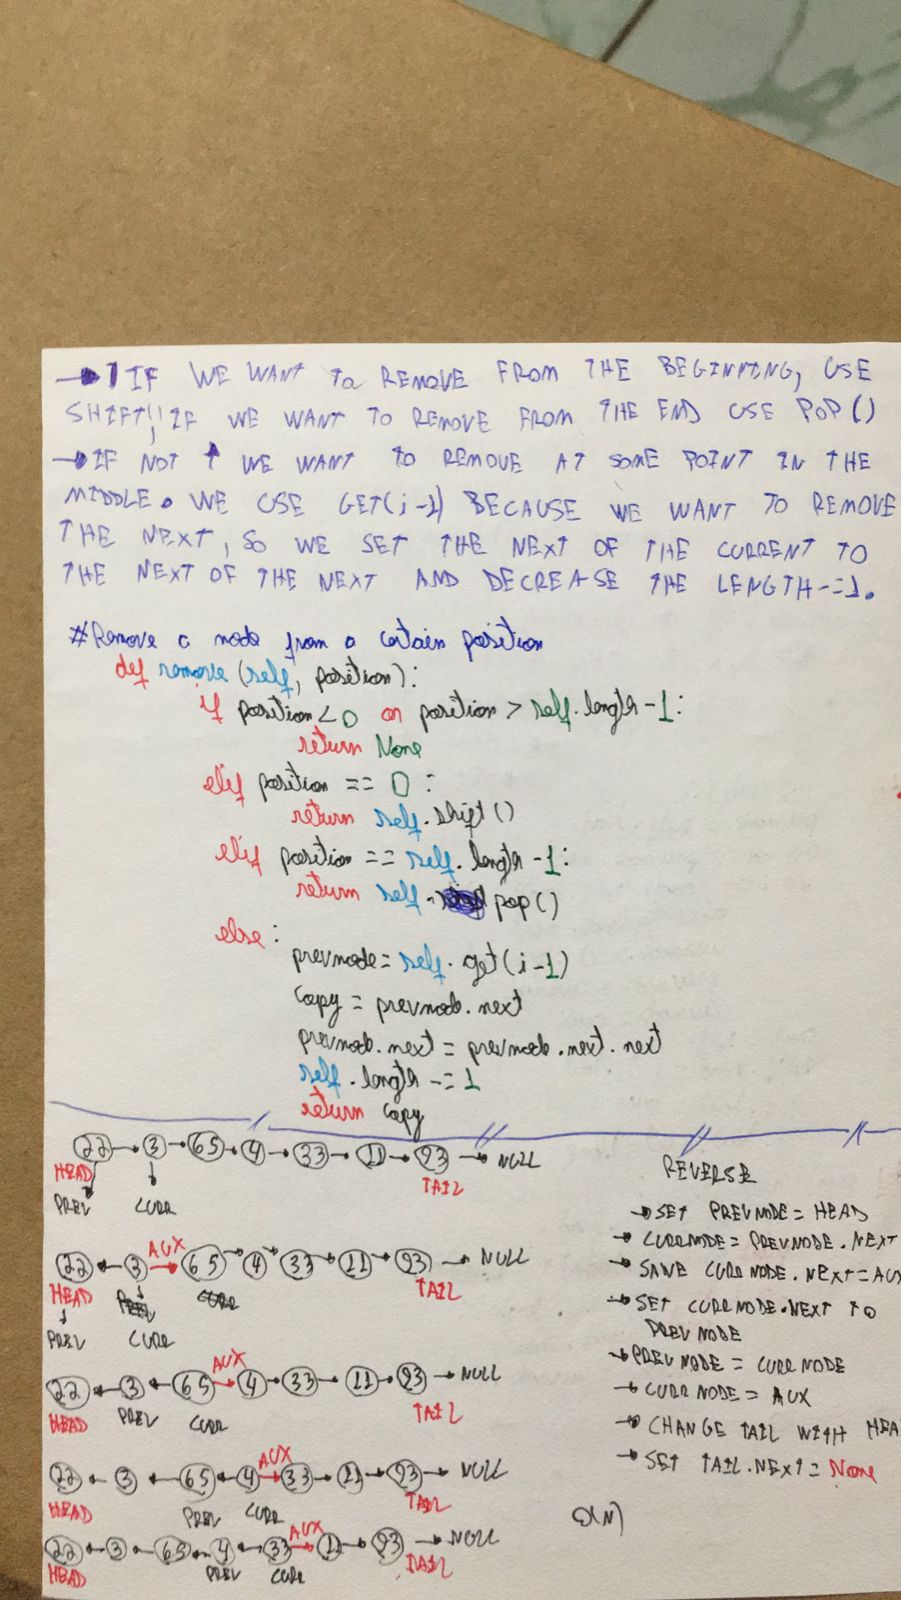 → IF WE WANT TO REMOVE FROM THE BEGINNING, USE
SHIFT!! IF WE WANT TO REMOVE FROM THE END USE POP()
→ IF NOT WE WANT TO REMOVE AT SOME POINT IN THE
MIDDLE. WE USE GET(i-1) BECAUSE WE WANT TO REMOVE
THE NEXT, SO WE SET THE NEXT OF THE CURRENT TO
THE NEXT OF THE NEXT AND DECREASE THE LENGTH-=1.
#Remove a node from a certain position
def remove (self, position):
if position < 0 or position > self.length -1:
return None
elif position == 0:
return self.shift()
elif position == self.length -1:
return self.pop()
else:
prevnode = self.get(i-1)
copy = prevnode.next
prevnode.next = prevnode.next.next
self.length -= 1
return copy
22 → 3 → 65 → 4 → 33 → 11 → 93 → NULL
HEAD TAIL
PREV CURR
AUX
22 ← 3 → 65 → 4 → 33 → 11 → 93 → NULL
HEAD TAIL
PREV CURR
AUX
22 ← 3 ← 65 → 4 → 33 → 11 → 93 → NULL
HEAD PREV CURR TAIL
AUX
22 ← 3 ← 65 ← 4 → 33 → 11 → 93 → NULL
HEAD PREV CURR TAIL
AUX
22 ← 3 ← 65 ← 4 ← 33 → 11 → 93 → NULL
HEAD PREV CURR TAIL
REVERSE
→ SET PREVNODE = HEAD
→ CURRNODE = PREVNODE.NEXT
→ SAVE CURRNODE.NEXT = AUX
→ SET CURRNODE.NEXT TO
PREVNODE
→ PREVNODE = CURRNODE
→ CURRNODE = AUX
→ CHANGE TAIL WITH HEA
→ SET TAIL.NEXT = None
O(N)